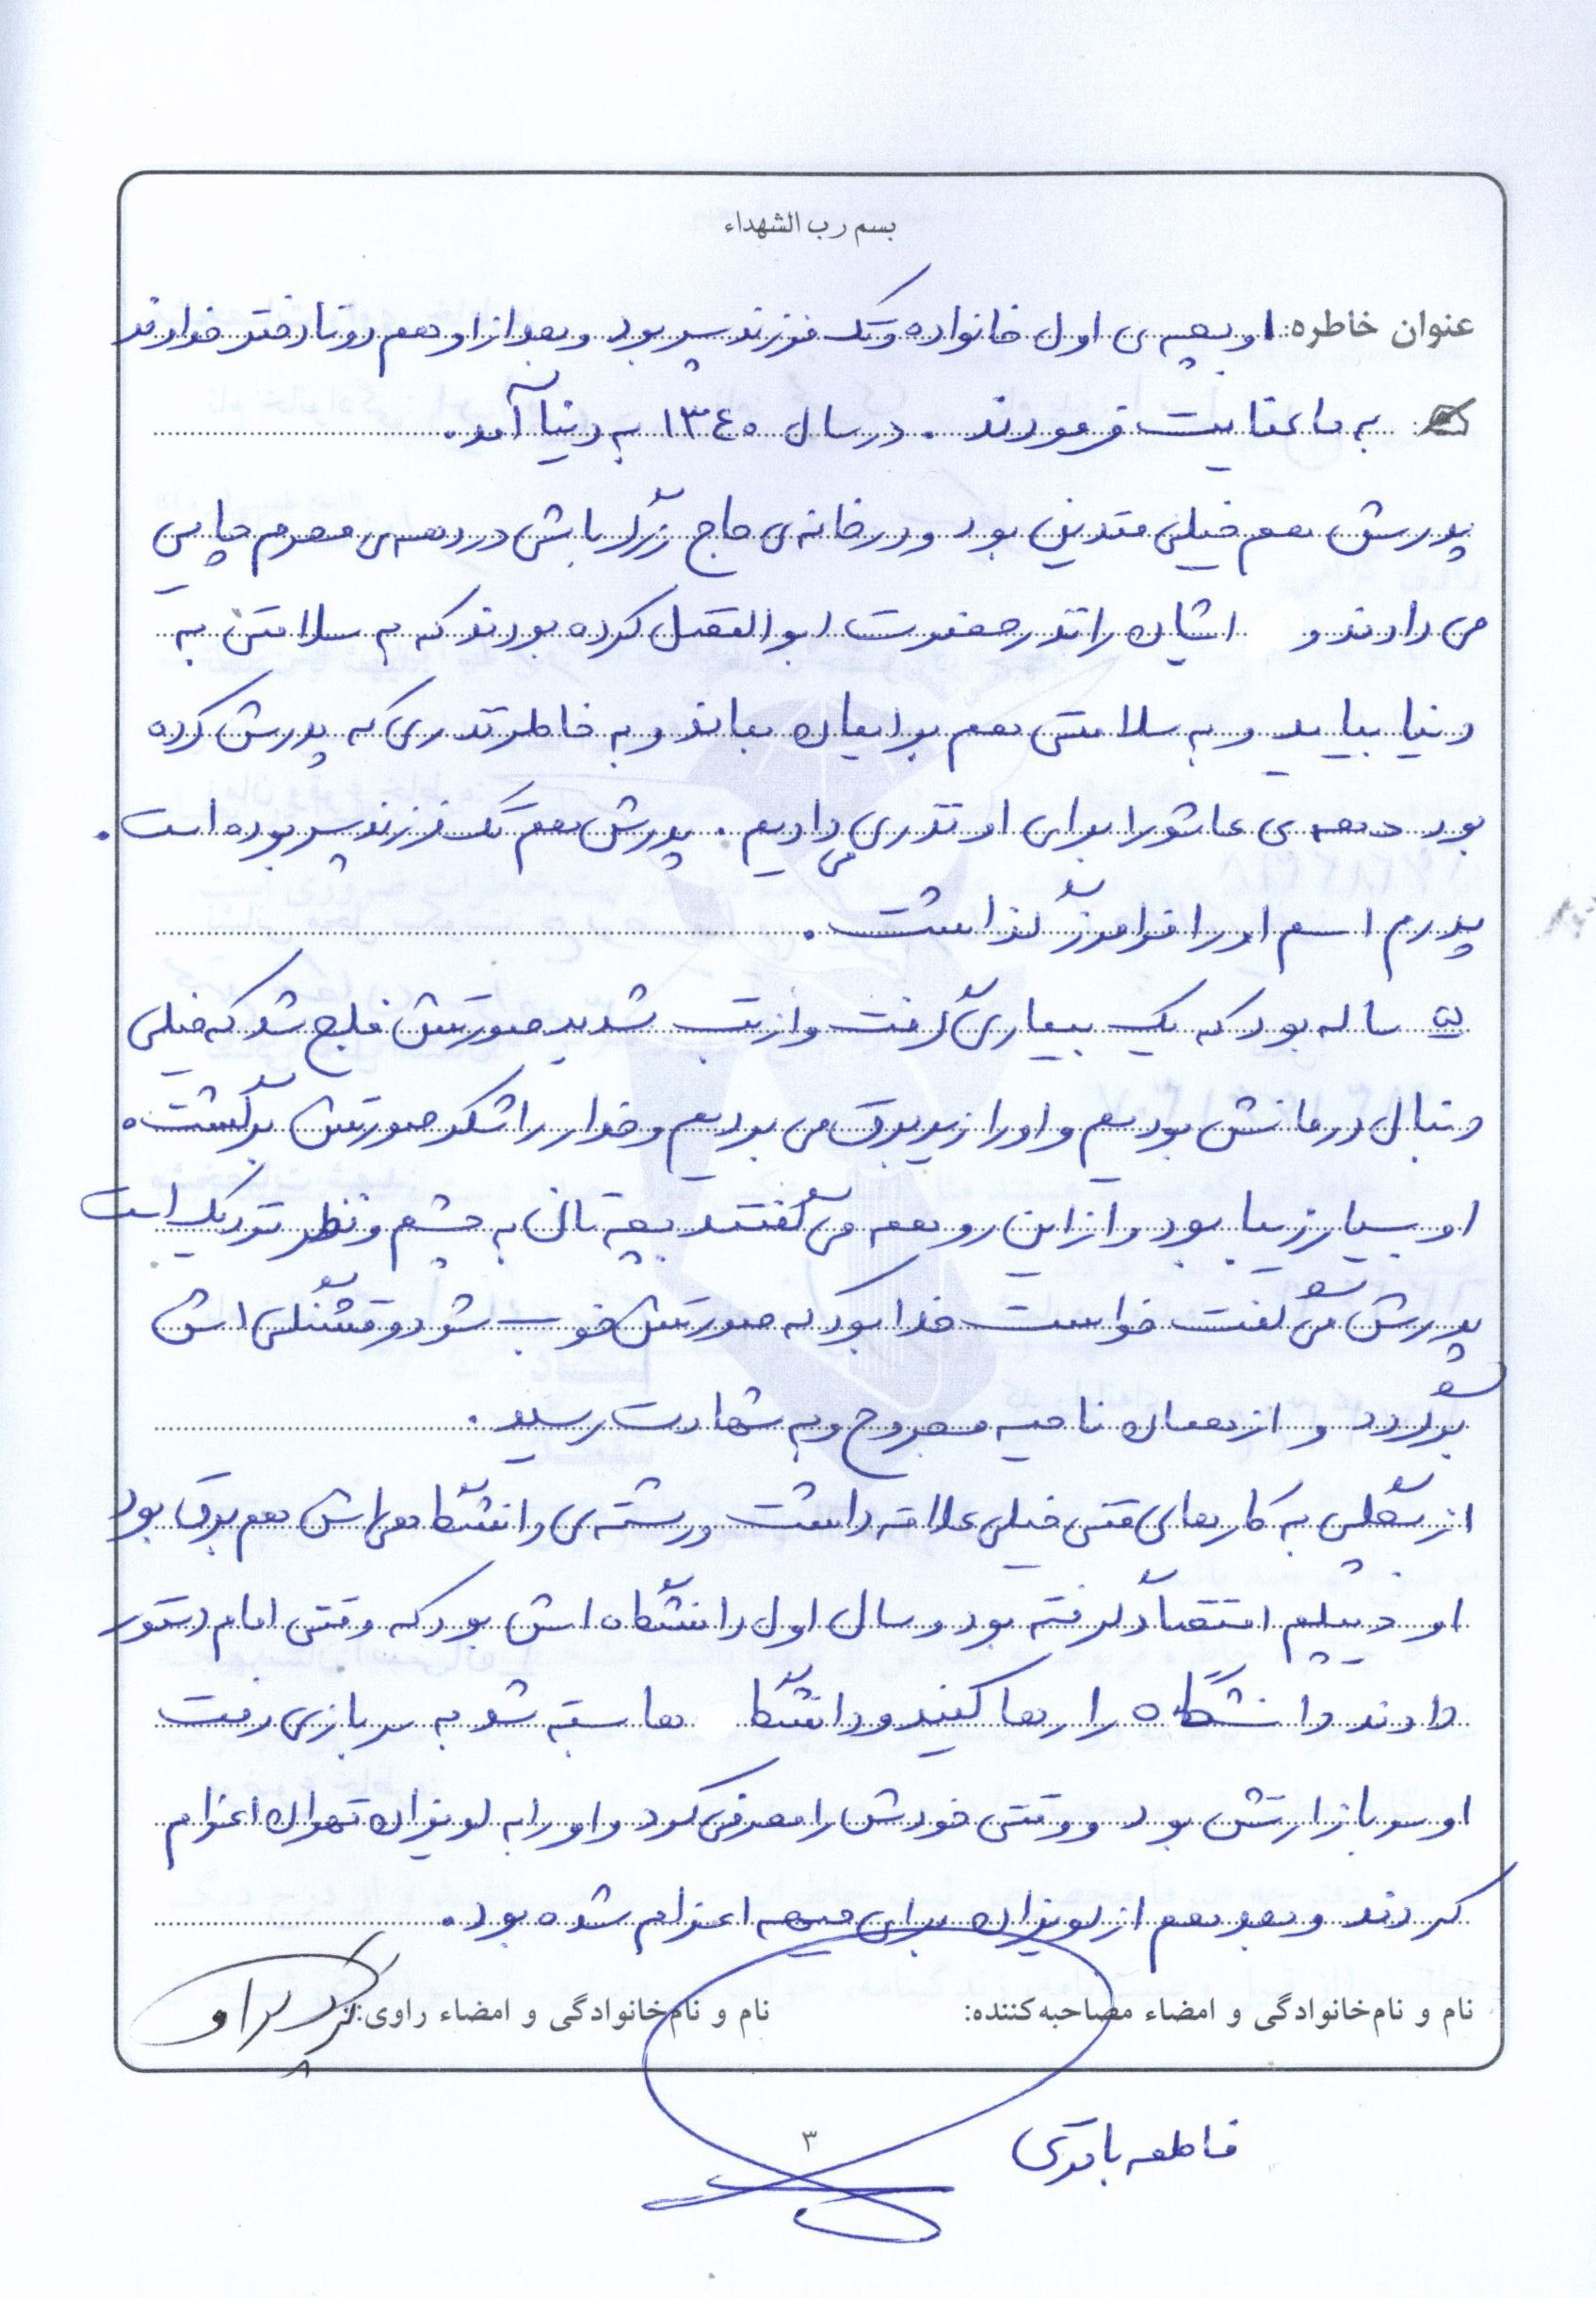 بسم رب الشهداء
عنوان خاطره: او بچه ی اول خانواده و تک فرزند پسر بود و بعد از او هم دو تا دختر خداوند
به ما عنایت فرمودند . در سال ۱۳۴۰ به دنیا آمد .
پدرش هم خیلی متدین بود و در خانه ی حاج در دهه ی محرم چایی
می دادند و ایشان را نذر حضرت ابوالفضل کرده بودند که به سلامتی به
دنیا بیاید و به سلامتی هم برایمان بماند و به خاطر نذری که پدرش کرده
بود دهه ی عاشورا برای او نذری می دادیم . پدرش هم تک فرزند پسر بوده است .
پدرم اسم او را فرامرز گذاشت .
۵ ساله بود که یک بیماری گرفت و از تب شدید صورتش فلج شد که خیلی
دنبال درمانش بودیم و او را زیر برق می بردیم و خدا را شکر صورتش برگشت .
او بسیار زیبا بود و از این رو همه می گفتند بچه تان به چشم و نظر نزدیک است
پدرش می گفت خواست خدا بود که صورتش خوب شود و قشنگی اش
برگردد و از همان ناحیه مجروح و به شهادت رسید .
از بچگی به کارهای فنی خیلی علاقه داشت و رشته ی دانشگاهی اش هم برق بود
او دیپلم اقتصاد گرفته بود و سال اول دانشگاه اش بود که وقتی امام دستور
دادند دانشگاه را رها کنید و دانشگا ها بسته شد به سربازی رفت
او سرباز ارتش بود و وقتی خودش را معرفی کرد و او را به لویزان تهران اعزام
کردند و بعد هم از لویزان برای جبهه اعزام شده بود .
نام و نام‌خانوادگی و امضاء مصاحبه‌کننده: نام و نام‌خانوادگی و امضاء راوی:
فاطمه باقری
۳